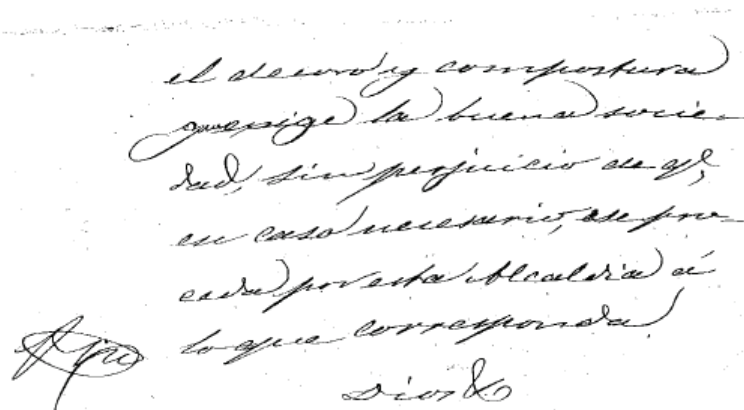 el decoro y compostura
que exige la buena socie-
dad, sin perjuicio de q.e,
en caso necesario, se pro-
ceda por esta Alcaldia á
lo que corresponda.
Dios &